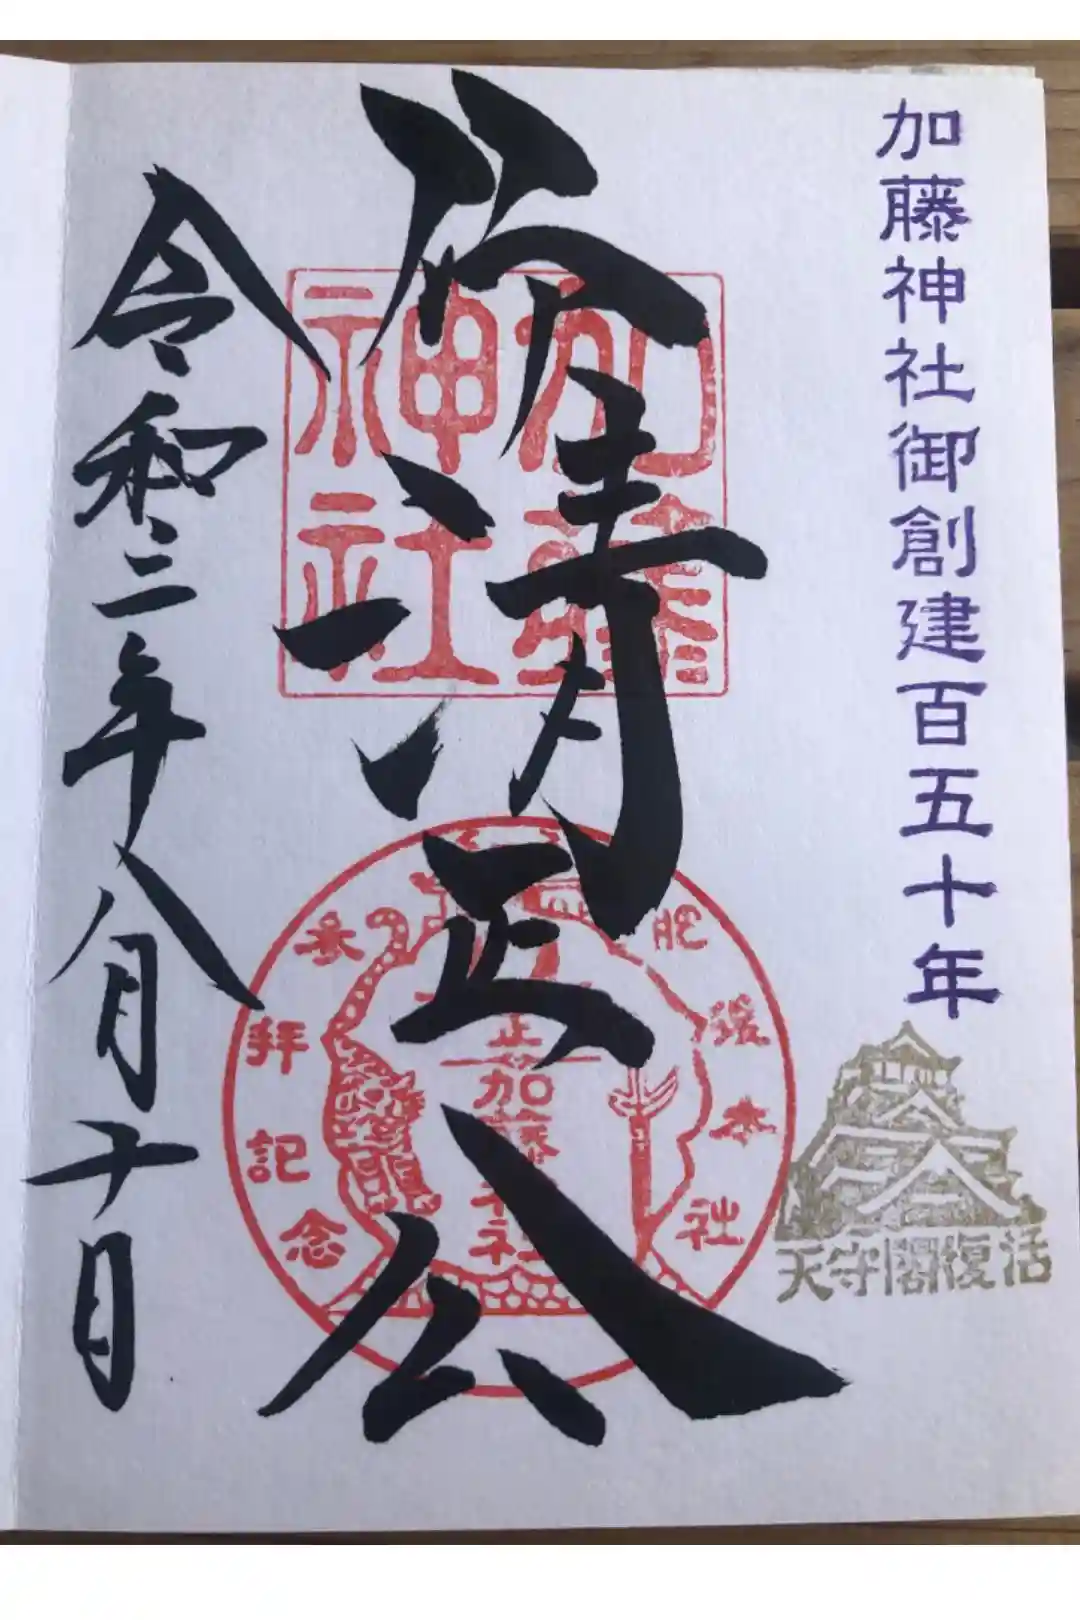 加藤神社御創建百五十年
天守閣復活
仰清正公
加藤
神社
肥後本社
加藤神社
参拝記念
令和三年八月十日